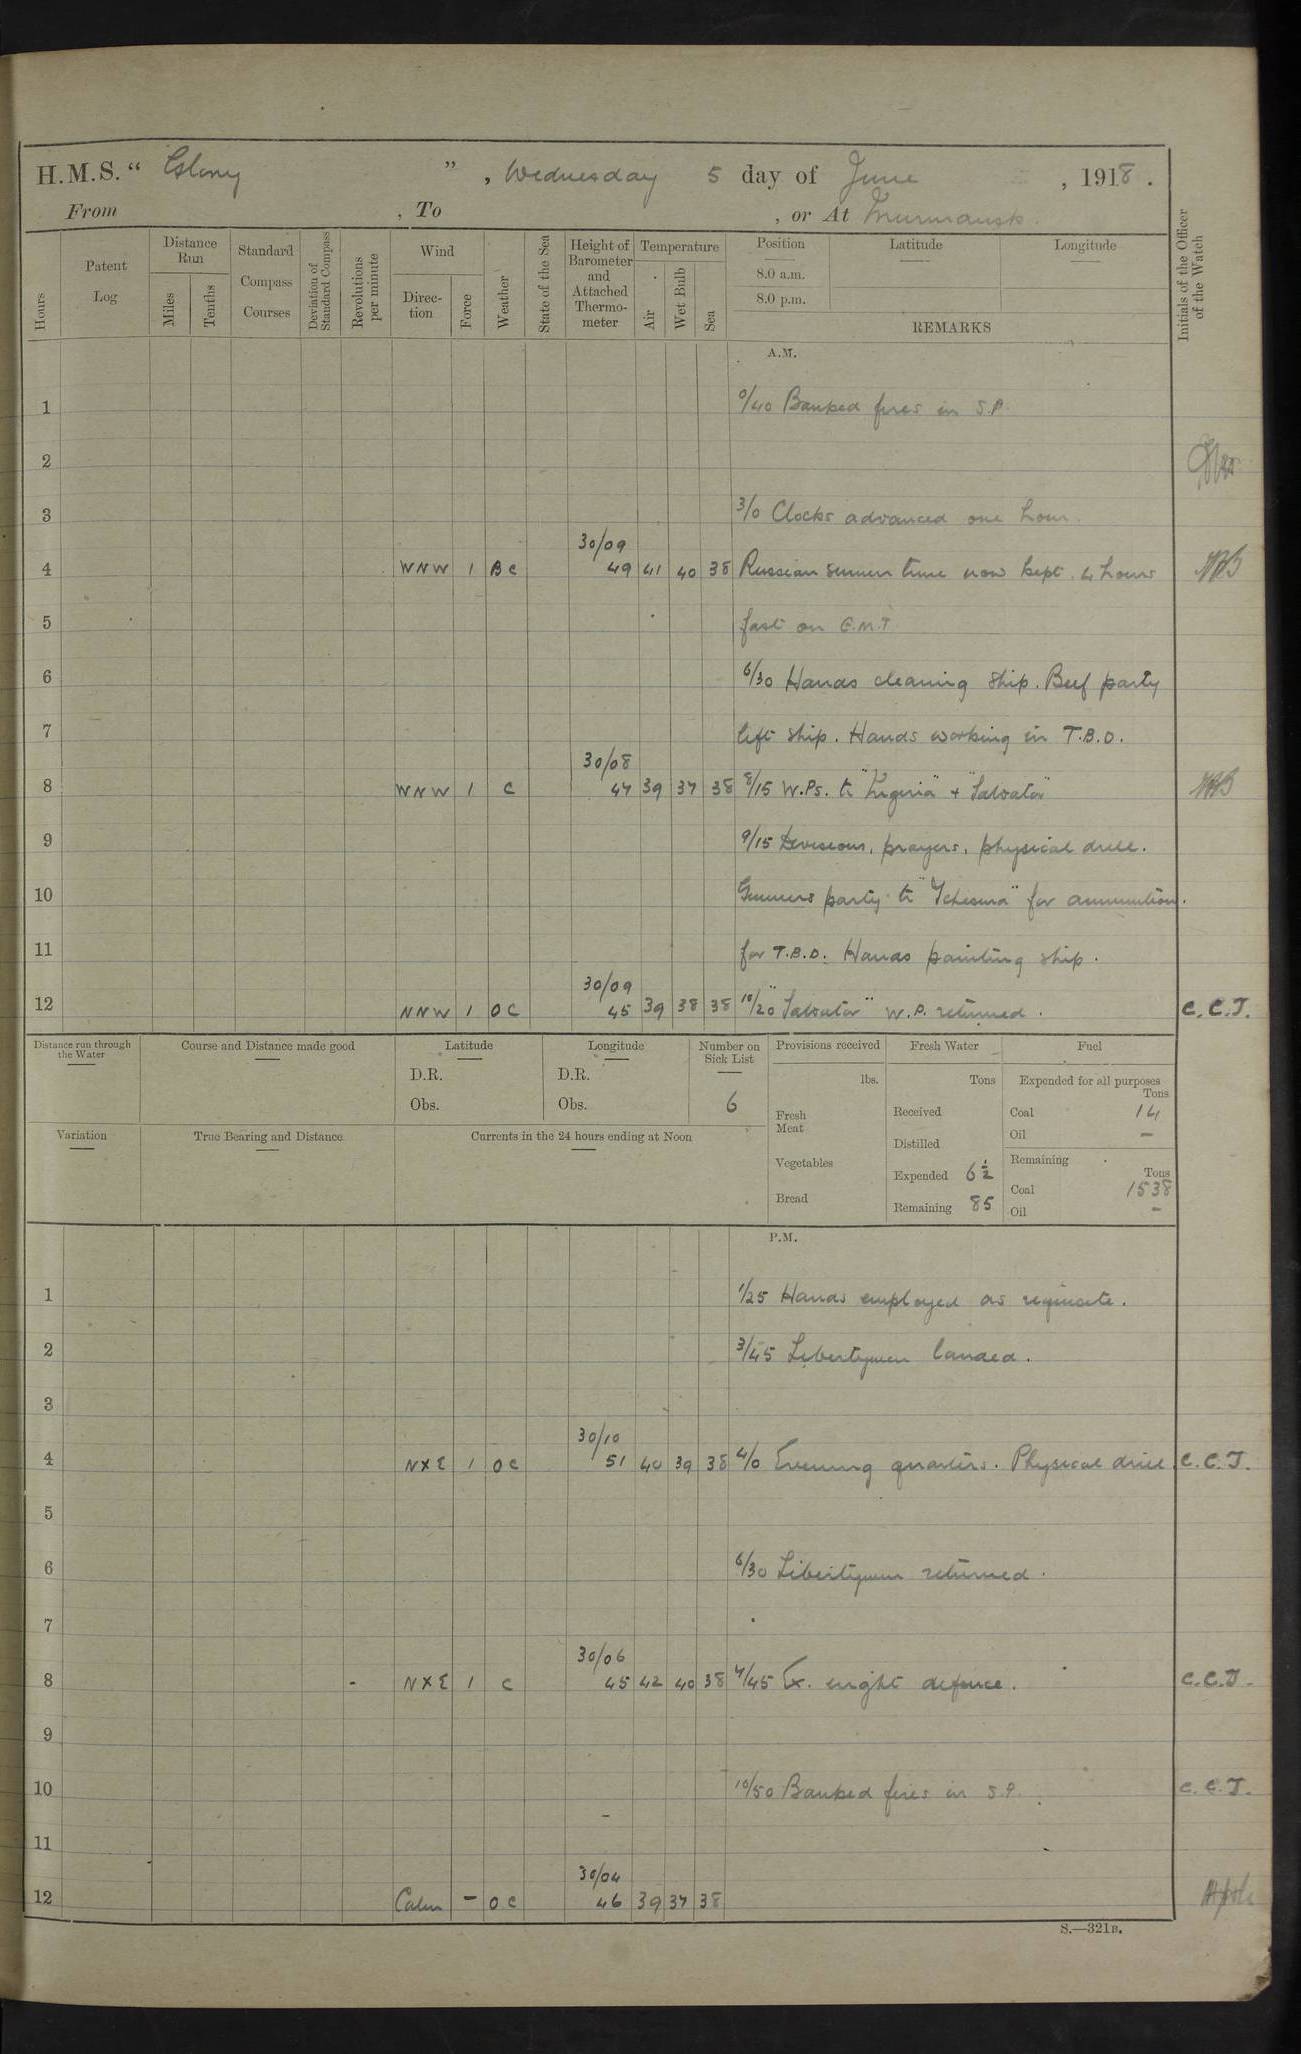 H.M.S. “ Glory ” , Wednesday 5 day of June , 1918 .
From , To , or At Murmansk.
Hours
Patent Log
Distance Run
Miles
Tenths
Standard Compass Courses
Deviation of Standard Compass
Revolutions per minute
Wind
Direc- tion
Force
Weather
State of the Sea
Height of Barometer and Attached Thermo- meter
Temperature
Air
Wet Bulb
Sea
Position
Latitude
Longitude
8.0 a.m.
8.0 p.m.
REMARKS
Initials of the Officer of the Watch
A.M.
1 0/40 Banked fires in S.P.
2
3 3/0 Clocks advanced one hour.
30/09
4 WNW 1 BC 49 41 40 38 Russian summer time now kept. 4 hours
5 fast on G.M.T
6 6/30 Hands cleaning ship. Beef party
7 left ship. Hands working in T.B.D.
30/08
8 WNW 1 C 47 39 37 38 8/15 W.Ps. to " " + "Salvator"
9 9/15 Divisions, prayers, physical drill.
10 Gunners party to "Tchesma" for ammunition.
11 for T.B.D. Hands painting ship.
30/09
12 NNW 1 OC 45 39 38 38 10/20 "Salvator" W.P. returned. C.C.J.
Distance run through the Water
Course and Distance made good
Latitude
D.R.
Obs.
Longitude
D.R.
Obs.
Number on Sick List
6
Provisions received
lbs.
Fresh Meat
Vegetables
Bread
Fresh Water
Tons
Received
Distilled
Expended 6½
Remaining 85
Fuel
Expended for all purposes
Tons
Coal 14
Oil –
Remaining
Tons
Coal 1538
Oil –
Variation
True Bearing and Distance
Currents in the 24 hours ending at Noon
P.M.
1 1/25 Hands employed as requisite.
2 3/45 Libertymen landed.
3
30/10
4 NXE 1 OC 51 40 39 38 4/0 Evening quarters. Physical drill C.C.J.
5
6 6/30 Libertymen returned.
7
30/06
8 NXE 1 C 45 42 40 38 7/45 Ex. night defence. C.C.J.
9
10 10/50 Banked fires in S.P. C.C.J.
11
30/04
12 Calm – OC 46 39 37 38
S.—321B.